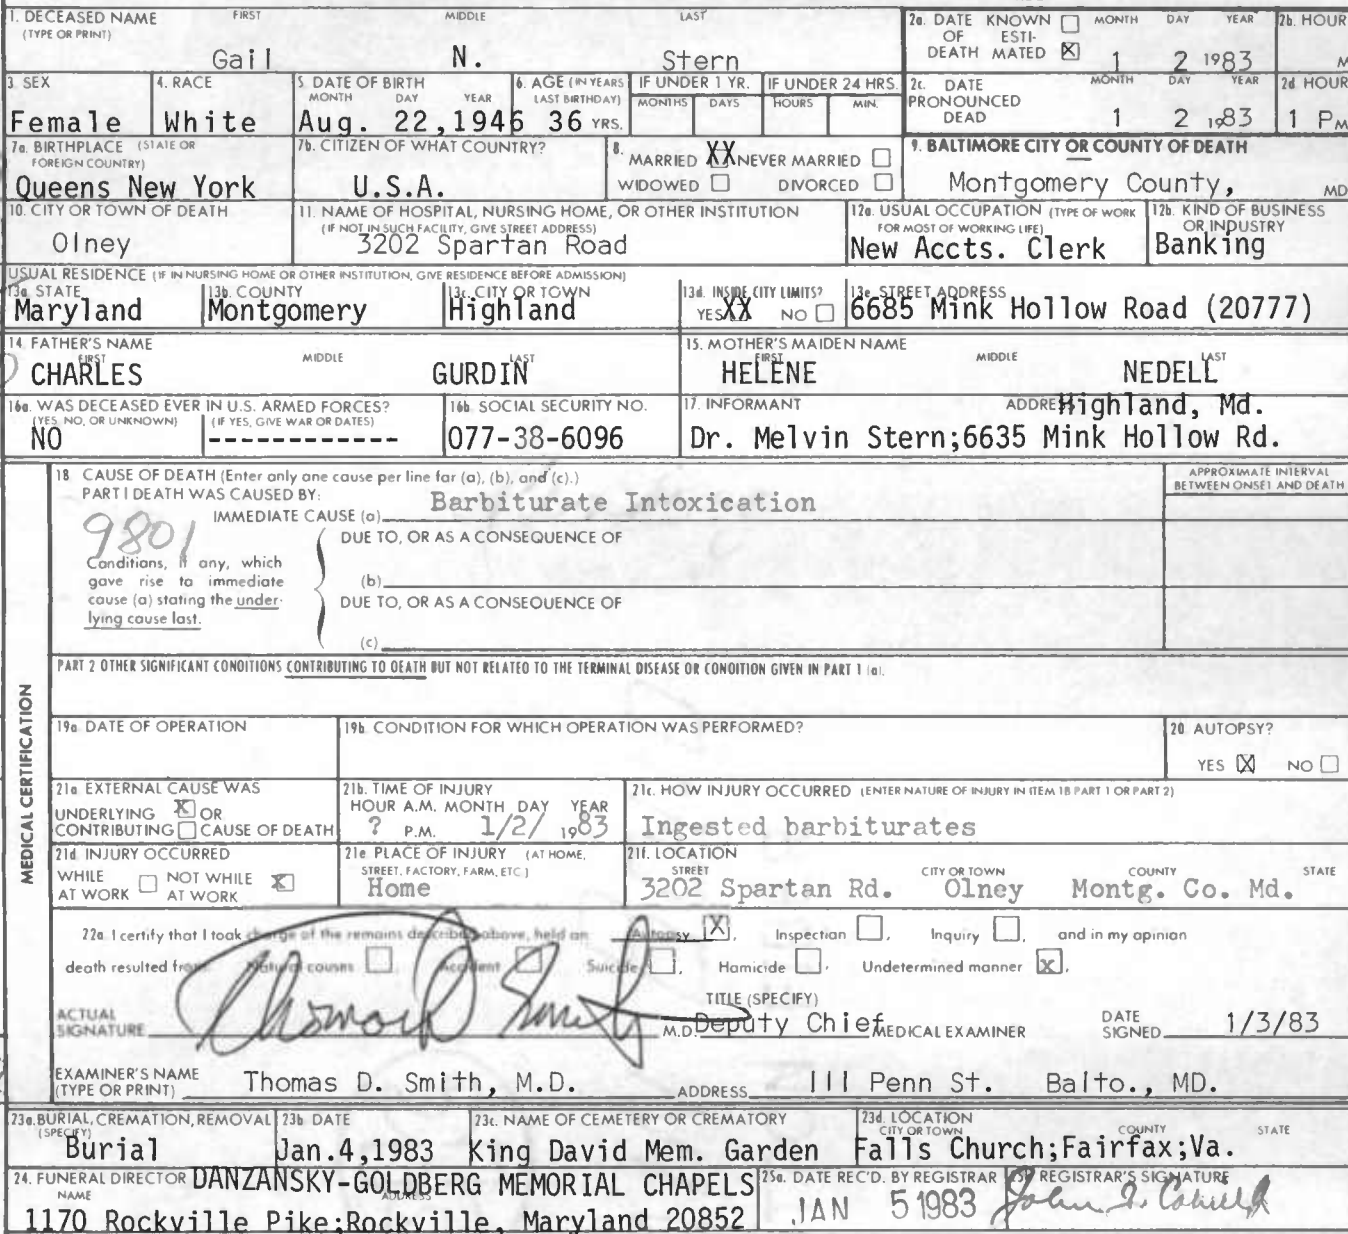 1. DECEASED NAME FIRST MIDDLE LAST
(TYPE OR PRINT)
Gail N. Stern
2a. DATE KNOWN ☐ MONTH DAY YEAR 2b. HOUR
OF ESTI-
DEATH MATED ☒ 1 2 1983 M
3. SEX 4. RACE 5. DATE OF BIRTH 6. AGE (IN YEARS IF UNDER 1 YR. IF UNDER 24 HRS.
MONTH DAY YEAR LAST BIRTHDAY) MONTHS DAYS HOURS MIN.
Female White Aug. 22,1946 36 YRS.
2c. DATE MONTH DAY YEAR 2d. HOUR
PRONOUNCED
DEAD 1 2 1983 1 PM
7a. BIRTHPLACE (STATE OR
FOREIGN COUNTRY)
Queens New York
7b. CITIZEN OF WHAT COUNTRY?
U.S.A.
8. MARRIED XX NEVER MARRIED ☐
WIDOWED ☐ DIVORCED ☐
9. BALTIMORE CITY OR COUNTY OF DEATH
Montgomery County, MD
10. CITY OR TOWN OF DEATH
Olney
11. NAME OF HOSPITAL, NURSING HOME, OR OTHER INSTITUTION
(IF NOT IN SUCH FACILITY, GIVE STREET ADDRESS)
3202 Spartan Road
12a. USUAL OCCUPATION (TYPE OF WORK
FOR MOST OF WORKING LIFE)
New Accts. Clerk
12b. KIND OF BUSINESS
OR INDUSTRY
Banking
USUAL RESIDENCE (IF IN NURSING HOME OR OTHER INSTITUTION, GIVE RESIDENCE BEFORE ADMISSION)
13a. STATE 13b. COUNTY 13c. CITY OR TOWN 13d. INSIDE CITY LIMITS? 13e. STREET ADDRESS
Maryland Montgomery Highland YES XX NO ☐ 6685 Mink Hollow Road (20777)
14. FATHER'S NAME
FIRST MIDDLE LAST
CHARLES GURDIN
15. MOTHER'S MAIDEN NAME
FIRST MIDDLE LAST
HELENE NEDELL
16a. WAS DECEASED EVER IN U.S. ARMED FORCES?
(YES, NO, OR UNKNOWN) (IF YES, GIVE WAR OR DATES)
NO ------------
16b. SOCIAL SECURITY NO.
077-38-6096
17. INFORMANT ADDRE Highland, Md.
Dr. Melvin Stern;6635 Mink Hollow Rd.
MEDICAL CERTIFICATION
18. CAUSE OF DEATH (Enter only one cause per line for (a), (b), and (c).)
PART I DEATH WAS CAUSED BY:
IMMEDIATE CAUSE (a) Barbiturate Intoxication
APPROXIMATE INTERVAL
BETWEEN ONSET AND DEATH
9801
Conditions, if any, which
gave rise to immediate
cause (a) stating the under-
lying cause last.
DUE TO, OR AS A CONSEQUENCE OF
(b)
DUE TO, OR AS A CONSEQUENCE OF
(c)
PART 2 OTHER SIGNIFICANT CONDITIONS CONTRIBUTING TO DEATH BUT NOT RELATED TO THE TERMINAL DISEASE OR CONDITION GIVEN IN PART 1 (a).
19a. DATE OF OPERATION 19b. CONDITION FOR WHICH OPERATION WAS PERFORMED? 20. AUTOPSY?
YES ☒ NO ☐
21a. EXTERNAL CAUSE WAS
UNDERLYING ☒ OR
CONTRIBUTING ☐ CAUSE OF DEATH
21b. TIME OF INJURY
HOUR A.M. MONTH DAY YEAR
? P.M. 1/2/ 1983
21c. HOW INJURY OCCURRED (ENTER NATURE OF INJURY IN ITEM 18 PART 1 OR PART 2)
Ingested barbiturates
21d. INJURY OCCURRED
WHILE ☐ NOT WHILE ☒
AT WORK AT WORK
21e. PLACE OF INJURY (AT HOME,
STREET, FACTORY, FARM, ETC.)
Home
21f. LOCATION
STREET CITY OR TOWN COUNTY STATE
3202 Spartan Rd. Olney Montg. Co. Md.
22a. I certify that I took charge of the remains described above, held an Autopsy ☒, Inspection ☐, Inquiry ☐, and in my opinion
death resulted from Natural causes ☐ Accident ☐ Suicide ☐, Homicide ☐, Undetermined manner ☒.
ACTUAL
SIGNATURE Thomas D Smith M.D.
TITLE (SPECIFY)
Deputy Chief MEDICAL EXAMINER
DATE
SIGNED 1/3/83
EXAMINER'S NAME
(TYPE OR PRINT) Thomas D. Smith, M.D. ADDRESS 111 Penn St. Balto., MD.
23a. BURIAL, CREMATION, REMOVAL 23b. DATE 23c. NAME OF CEMETERY OR CREMATORY 23d. LOCATION
(SPECIFY) CITY OR TOWN COUNTY STATE
Burial Jan.4,1983 King David Mem. Garden Falls Church;Fairfax;Va.
24. FUNERAL DIRECTOR DANZANSKY-GOLDBERG MEMORIAL CHAPELS
NAME ADDRESS
1170 Rockville Pike;Rockville, Maryland 20852
25a. DATE REC'D. BY REGISTRAR
JAN 5 1983
REGISTRAR'S SIGNATURE
John